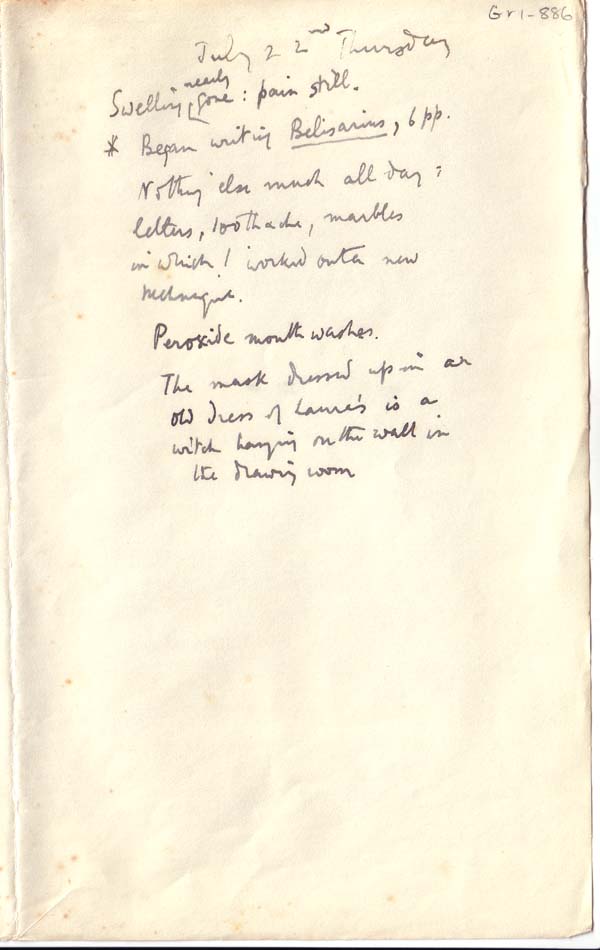 Gr1-886
July 22nd Thursday
nearly
Swelling gone: pain still.
* Began writing Belisarius, 6 pp.
Nothing else much all day:
letters, toothache, marbles
in which I worked out a new
technique.
Peroxide mouth washes.
The mask dressed up in an
old dress of Laura's is a
witch hanging on the wall in
the drawing room